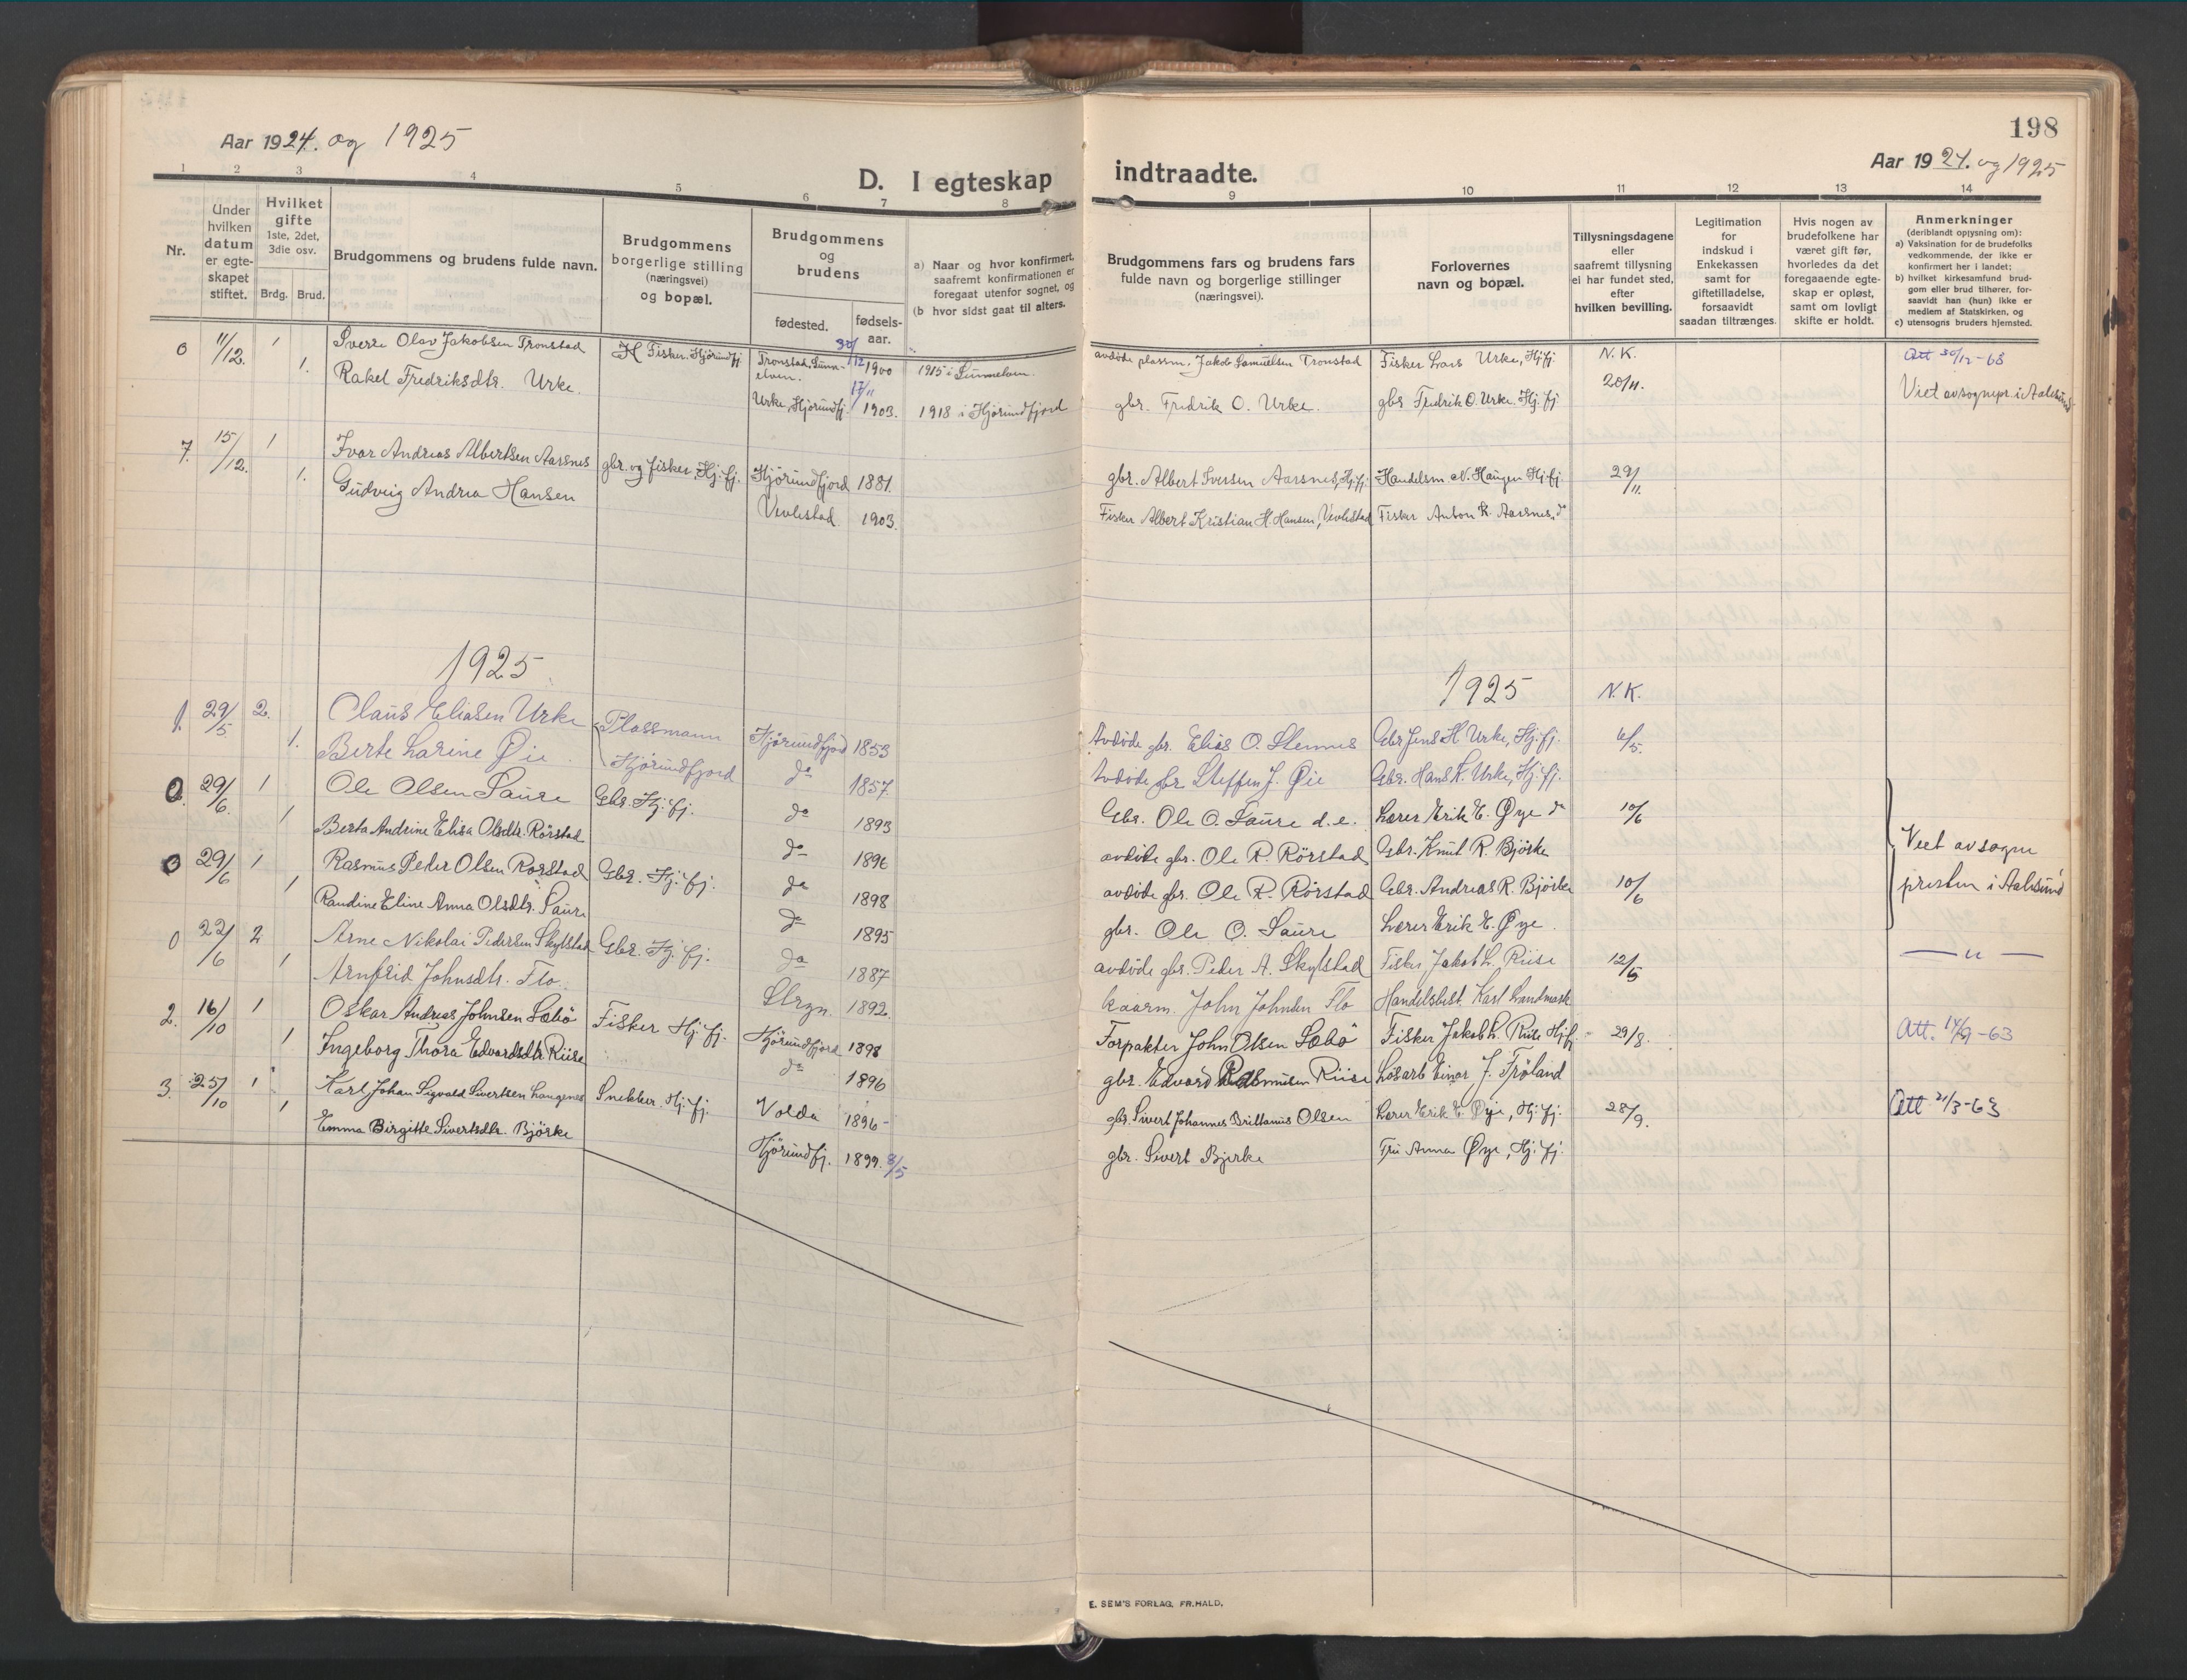 198
Aar 1924. og 1925
Aar 1924. og 1925
D. I egteskap indtraadte.
1 2 3 4 5 6 7 8 9 10 11 12 13 14
Nr.
Under hvilken datum er egteskapet stiftet.
Hvilket gifte 1ste, 2det, 3die osv.
Brdg. Brud.
Brudgommens og brudens fulde navn.
Brudgommens borgerlige stilling (næringsvei) og bopæl.
Brudgommens og brudens
fødested. fødselsaar.
a) Naar og hvor konfirmert, saafremt konfirmationen er foregaat utenfor sognet, og
(b hvor sidst gaat til alters.
Brudgommens fars og brudens fars fulde navn og borgerlige stillinger (næringsvei).
Forlovernes navn og bopæl.
Tillysningsdagene eller saafremt tillysning ei har fundet sted, efter hvilken bevilling.
Legitimation for indskud i Enkekassen samt for giftetilladelse, forsaavidt saadan tiltrænges.
Hvis nogen av brudefolkene har været gift før, hvorledes da det foregaaende egteskap er opløst, samt om lovligt skifte er holdt.
Anmerkninger
(deriblandt opjysning om):
a) Vaksination for de brudefolks vedkommende, der ikke er konfirmert her i landet;
b) hvilket kirkesamfund brudgom eller brud tilhører, forsaavidt han (hun) ikke er medlem af Statskirken, og
c) utensogns bruders hjemsted.
0 11/12. 1 Sverre Olav Jakobsen Tronstad H Fisker. Hjörundfj. Tronstad, Sunnelven. 30/12 1900 1915 i Sunnelven. avdöde plassm. Jakob Samuelsen Tronstad Fisker Lars Urke, Hj.fj. N.K. Att 30/12-63
1. Rakel Fredriksdtr. Urke. Urke, Hjörundfj. 17/11 1903. 1918 i Hjörundfjord gbr. Fredrik O. Urke. gbr Fredrik O. Urke. Hj.fj 20/11. Viet av sognepr. i Aalesund
7. 15/12. 1 Ivar Andreas Albertsen Aarsnes gbr. og fisker, Hj.fj. Hjörundfjord 1881. gbr. Albert Iversen Aarsnes, Hj.fj. Handelsm. N. Haugen Hj.fj. 29/11.
1. Gudveig Andrea Hansen Vevlestad. 1903. Fisker Albert Kristian H. Hansen, Vevlestad Fisker Anton K. Aarsnes, do
1925. 1925
1. 29/5. 2. Claus Eliasen Urke Plassmann Hjörundfjord 1853 Avdöde gbr. Elias O. Stennes Gbr Jens H. Urke, Hj.fj. N.K. 6/5.
1. Berte Larine Øie Hjörundfjord do 1857. Avdöde gbr Steffen J. Øie Gbr. Hans K. Urke, Hj.fj.
0. 29/6. 1 Ole Olsen Saure Gbr. Hj.fj. do 1893 Gbr. Ole O. Saure d.e. Lærer Erik E. Øye do 10/6
1 Berta Andrine Elisa Olsdtr. Rörstad do 1896 avdöde gbr. Ole R. Rörstad Gbr. Knut R. Björke
0 29/6 1 Rasmus Peder Olsen Rörstad Gbr. Hj.fj. do 1898 avdöde gbr. Ole R. Rörstad Gbr. Andreas R. Björke 10/6 Viet av sogne
1 Randine Eline Anna Olsdtr. Saure do 1895 gbr. Ole O. Saure Lærer Erik E. Øye. presten i Aalesund
0 22/6 2 Arne Nikolai Pedersen Skylstad Gbr. Hj.fj. do 1887 avdöde gbr. Peder A. Skylstad Fisker Jakob L. Riise 12/5 — „ —
1 Arnfrid Johnsdtr. Flo. Stryn. 1892. kaarm. John Johnsen Flo Handelsbest. Karl Landmark
2. 16/10 1 Oskar Andreas Johnsen Sæbö Fisker Hj.fj. Hjörundfjord 1898 Forpakter John Olsen Sæbö Fisker Jakob L. Riise Hj.fj. 29/8. Att. 14/9-63
1 Ingeborg Thora Edvardsdtr Riise do 1896 gbr. Edvard Rasmusen Riise Lösarb Einar J. Fröland
3. 25/10 1 Karl Johan Sigvald Sivertsen Langenes Snekker. Hj.fj. Volda 1896 gbr. Sivert Johannes Brittanus Olsen Lærer Erik E. Øye, Hj.fj. 28/9. Att 21/3-63
1 Emma Birgitte Sivertsdtr. Björke Hjörundfj. 1899. 8/5 gbr. Sivert Bjerke Fru Anna Øye, Hj.fj.
E. SEM'S FORLAG, FR.HALD.